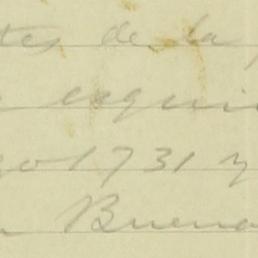 tes de la
esqui
go 1731 y
Bueno